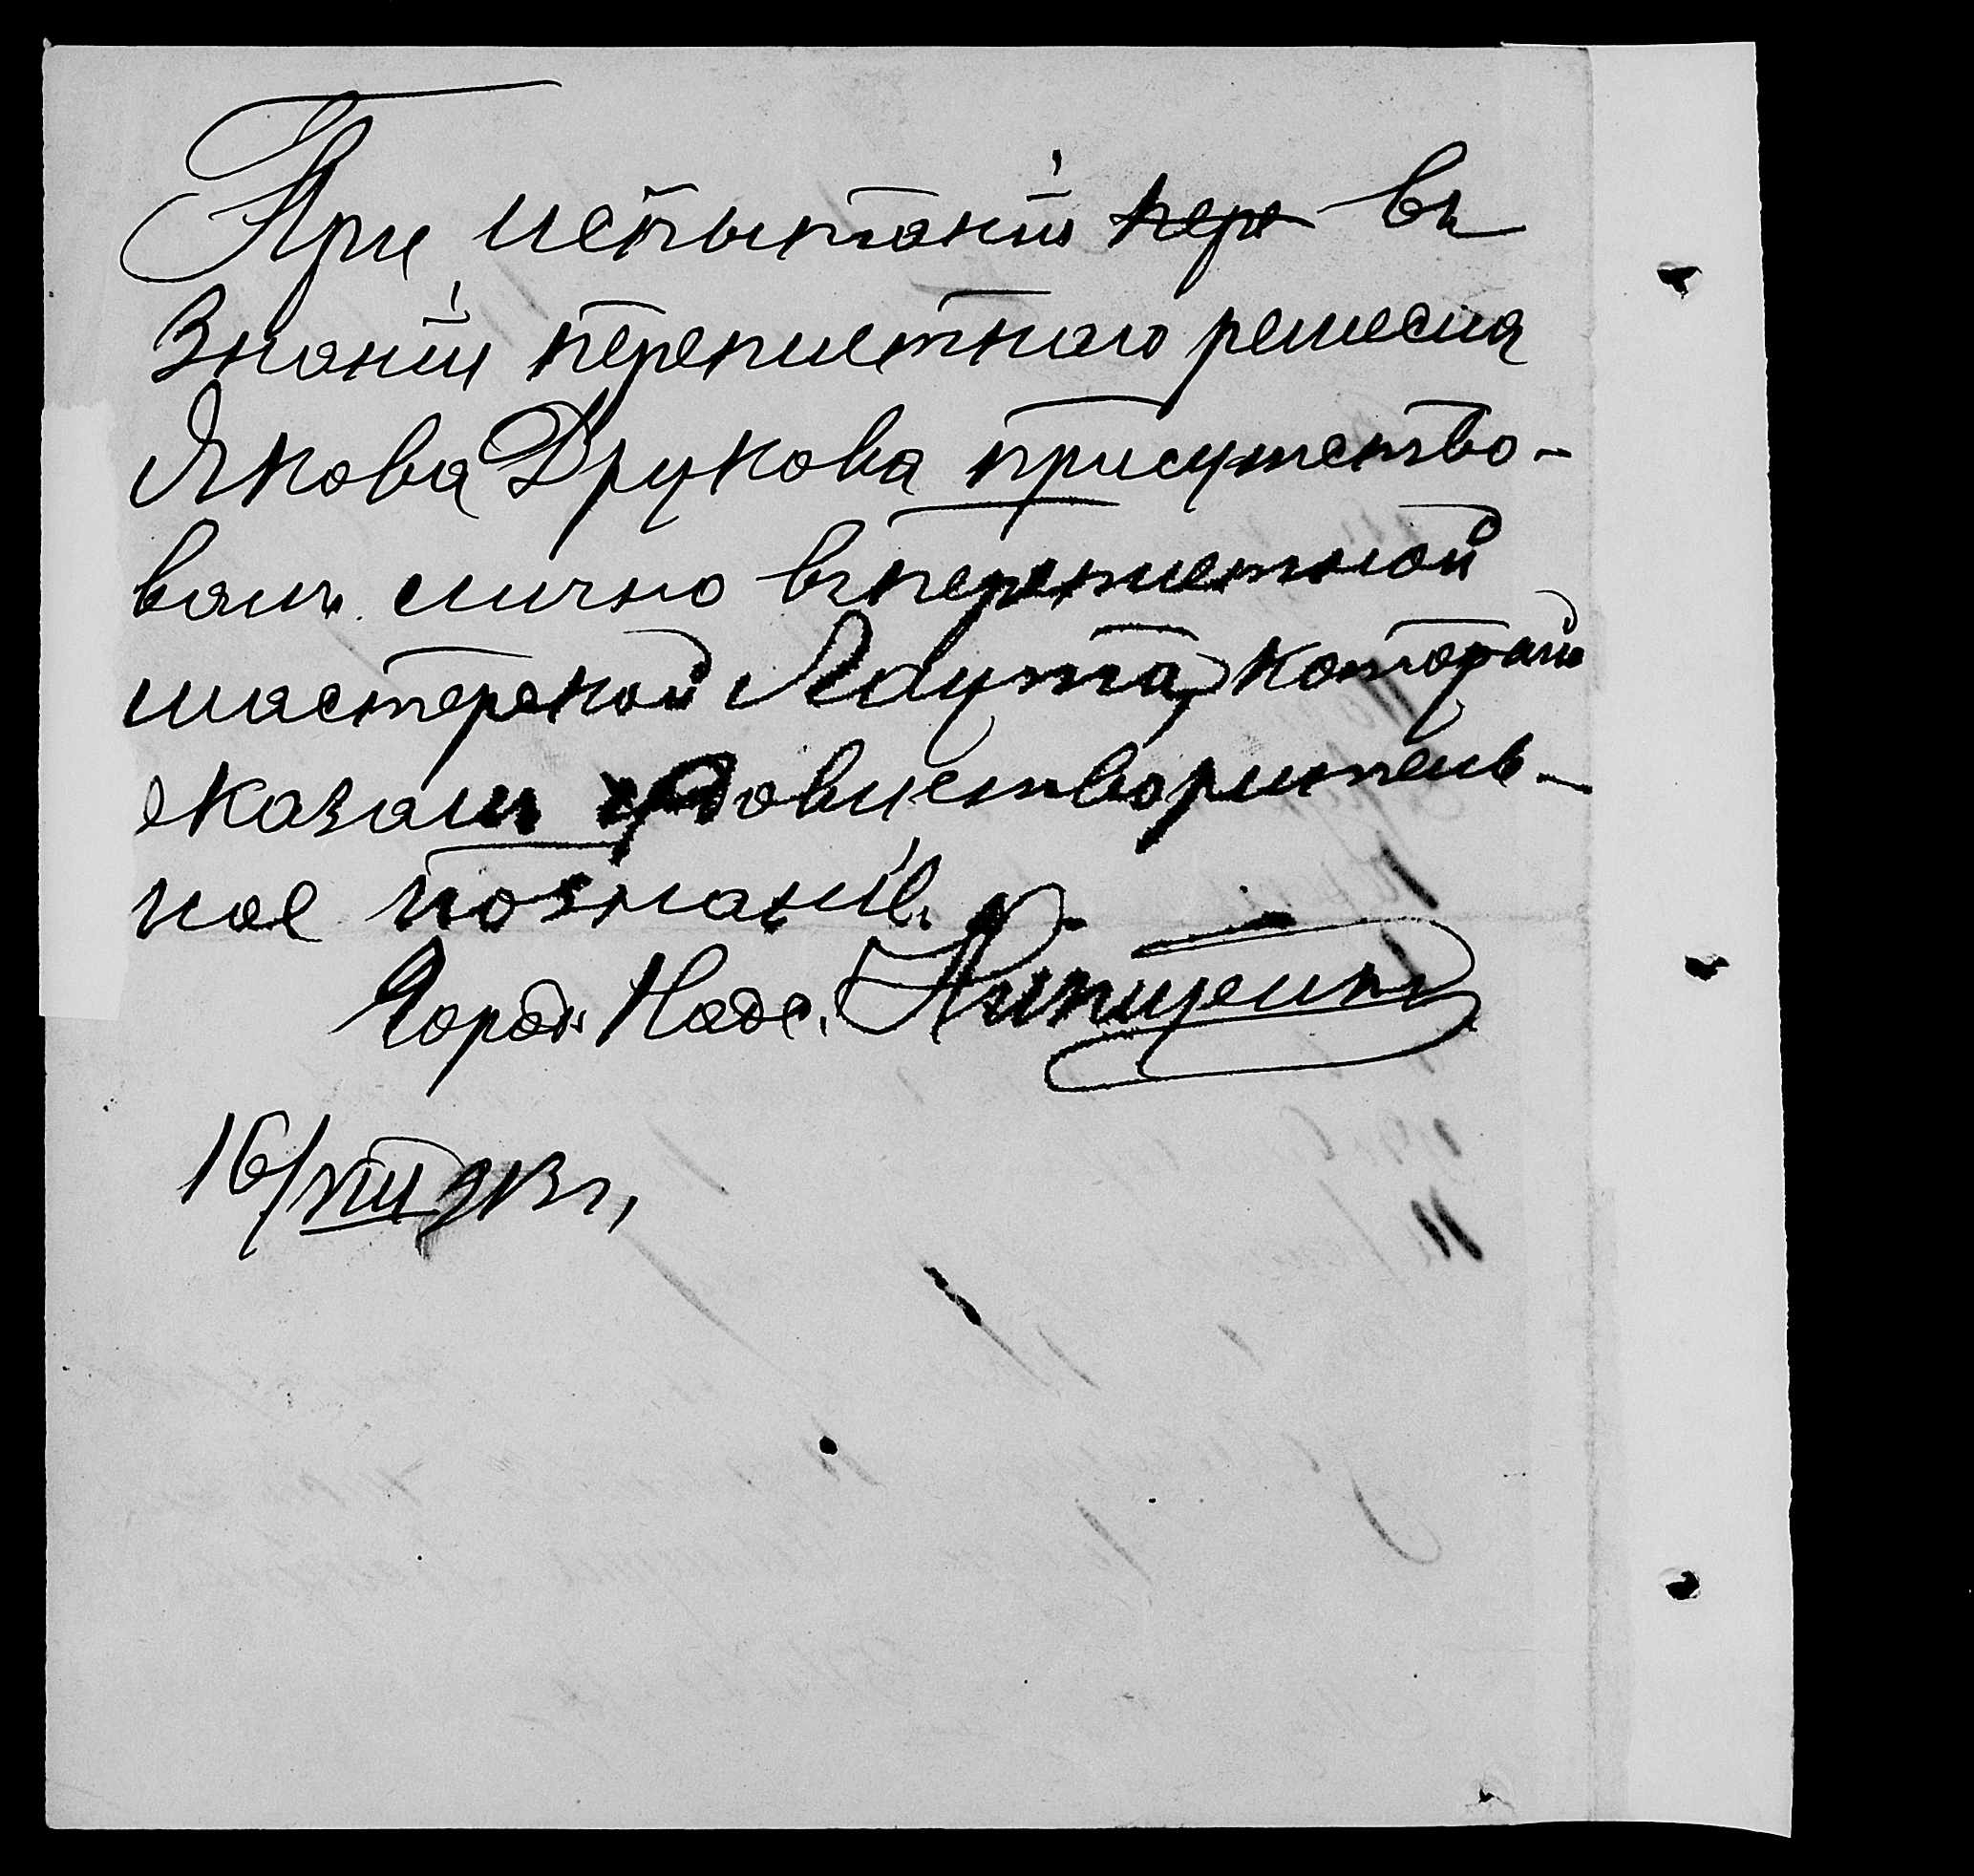 При испытаніи пере въ
знаніи переплетнаго ремесла
Якова Друкова присутство-
валъ лично въ переплетной
мастерской который
оказалъ удовлетворитель-
ное познаніе.
Город. Надз.
16/XII 913 г,